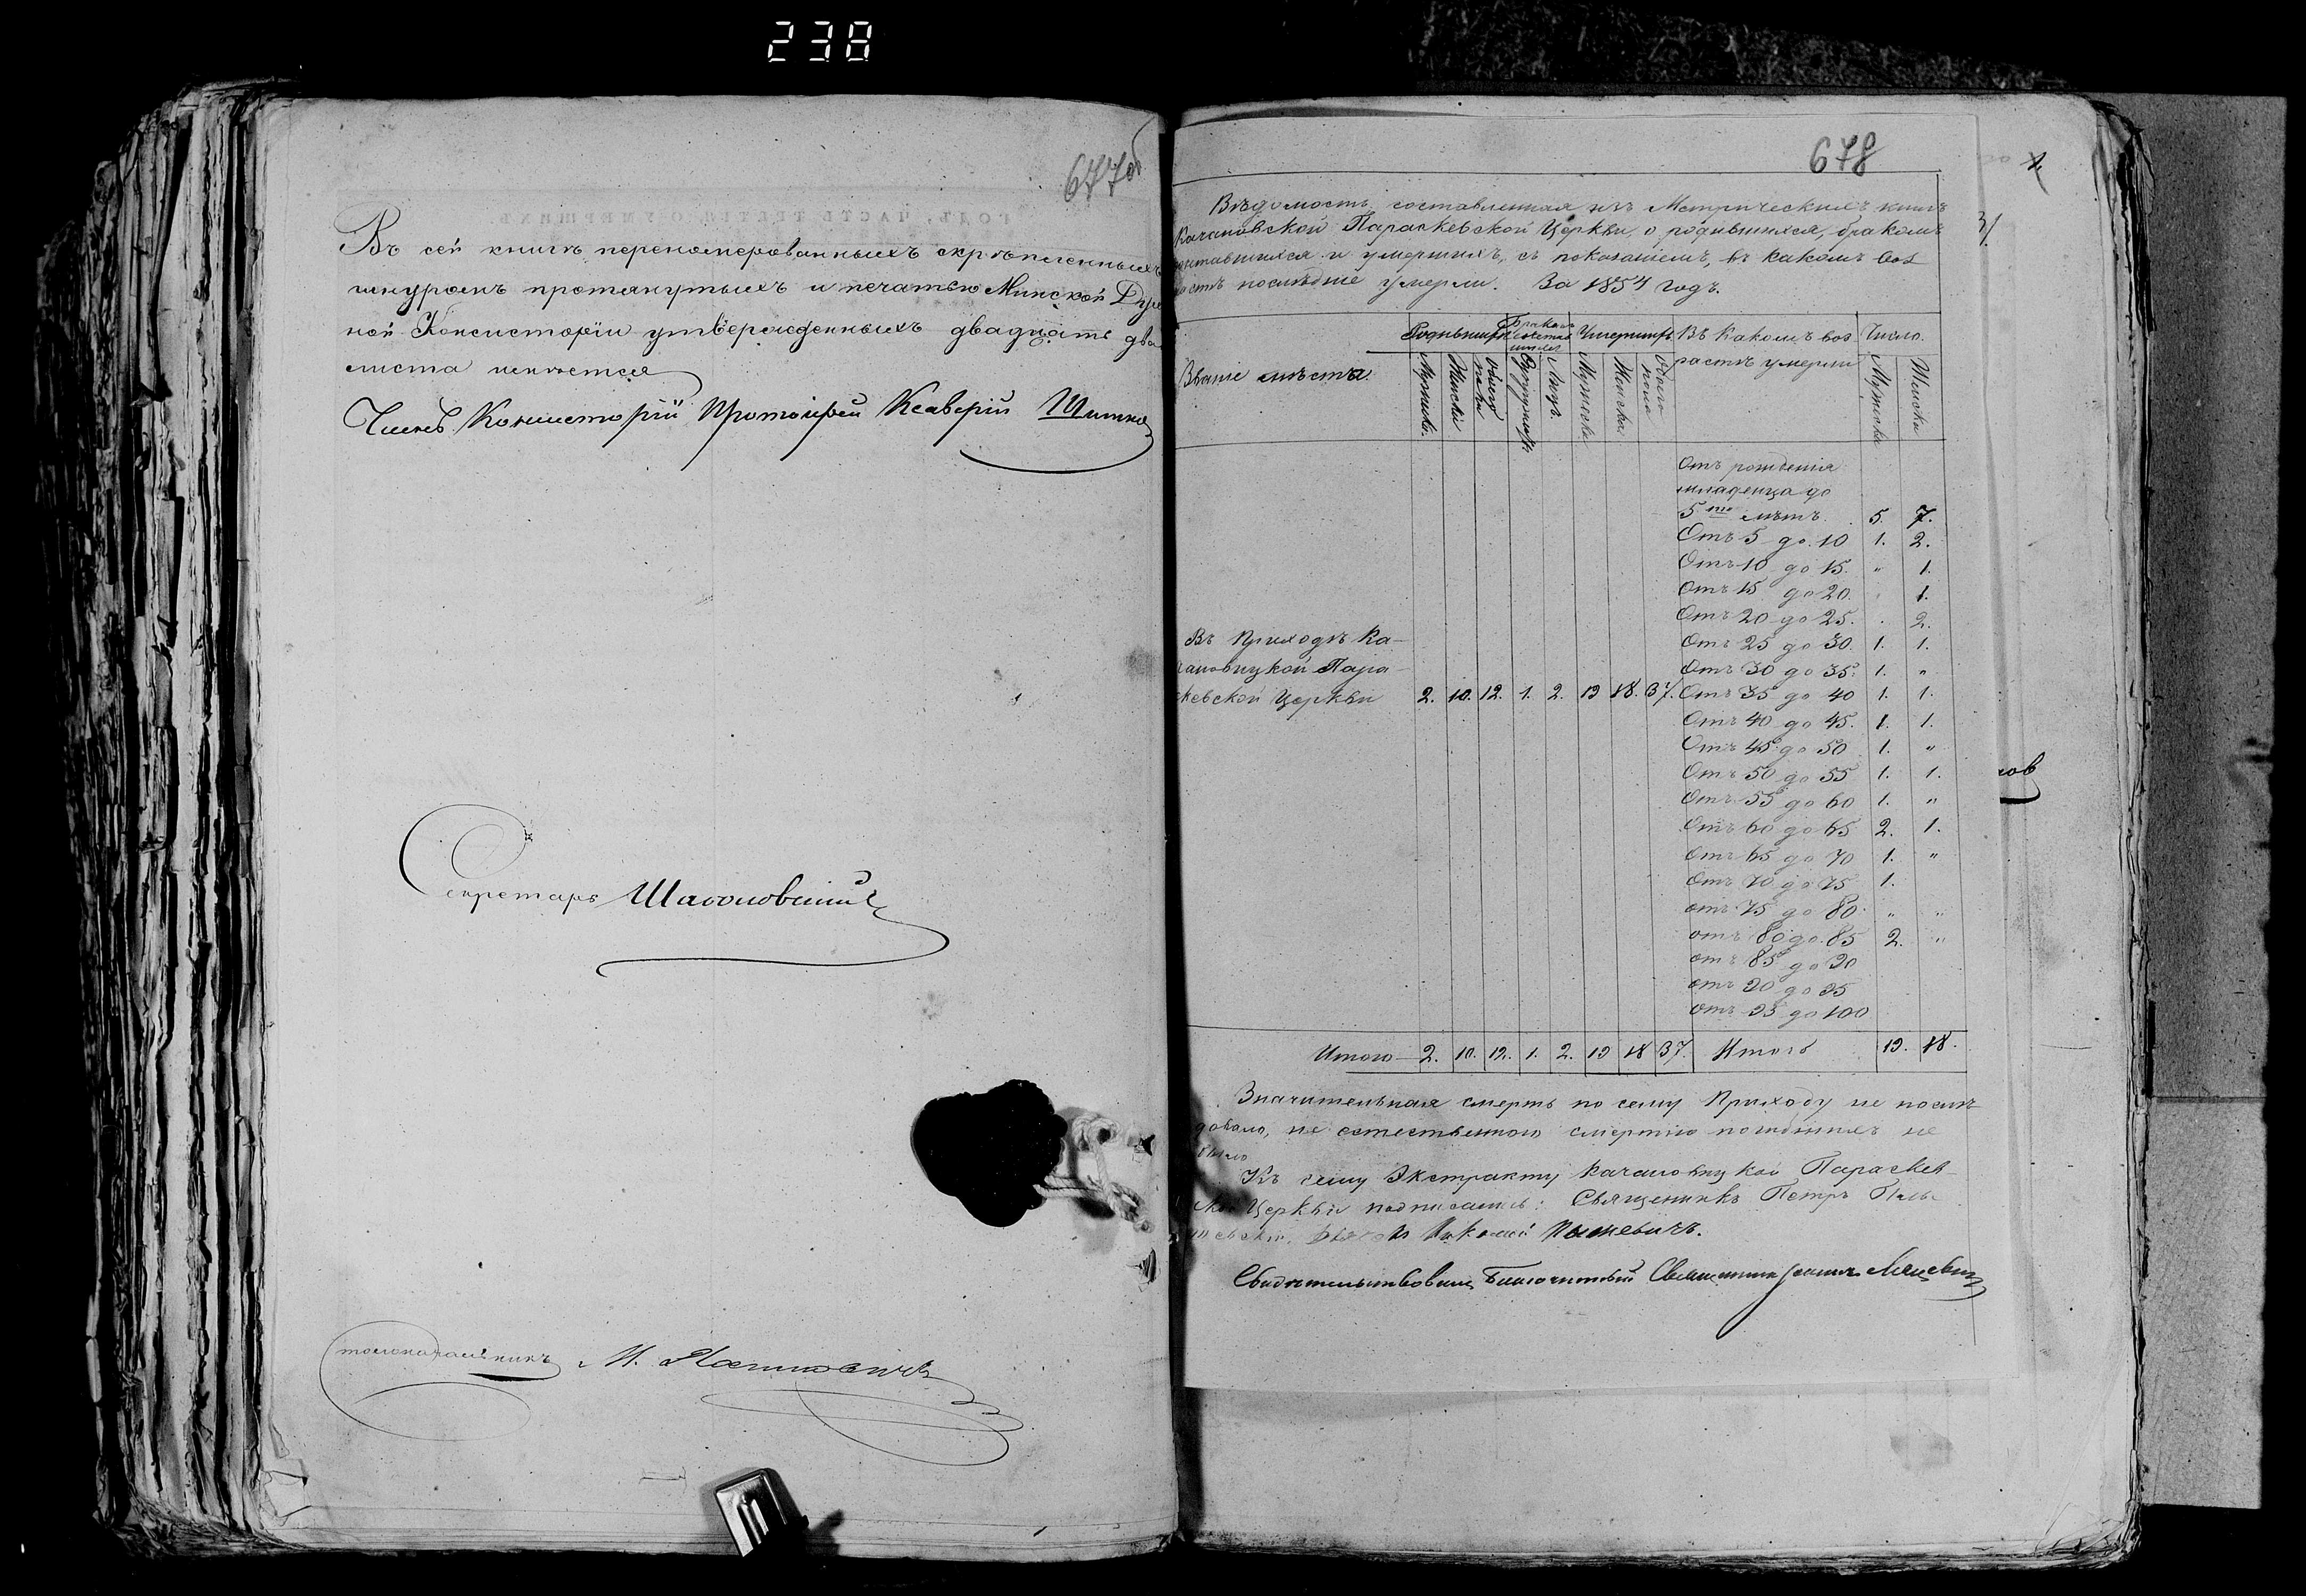 238
677об
Въ сей книгѣ переномерованныхъ скрѣпленныхъ
шнуромъ протянутыхъ и печатью Минской Духов
ной Консисторіи утвержденныхъ двадцать два
листа имѣется
Членъ Консисторіи Протоіерей Ксаверій
Секретарь
Столоначальникъ М.
678
Вѣдомость составленная изъ Метрическихъ книгъ
Качановской Параскевской Церкви, о родившихся, бракомъ
сочетавшихся и умершихъ, съ показаніемъ, въ какомъ воз
растѣ послѣдніе умерли. За 1854 годъ.
Званіе мѣста. Родившихся Бракомъ сочетавшихся Умершихъ Въ какомъ воз Число.
растѣ умерли
Мужеск. Женскій Обоего пола Супружествъ Лицъ. Мужеска Женска Обоего пола Мужеска Женска
Отъ рожденія
младенца до
5ти лѣтъ. 5. 7.
Отъ 5 до 10 1. 2.
Отъ 10 до 15. " 1.
Отъ 15 до 20. " 1.
Отъ 20 до 25. . 2.
Въ Приходѣ Ка-
Отъ 25 до 30. 1. 1.
чановицкой Пара-
Отъ 30 до 35. 1. "
скевской Церкви 2. 10. 12. 1. 2. 19 18. 37. Отъ 35 до 40 1. 1.
Отъ 40 до 45. 1. 1.
Отъ 45 до 50 1. "
Отъ 50 до 55 1. 1.
Отъ 55 до 60 1. "
Отъ 60 до 65 2. 1.
Отъ 65 до 70 1. "
Отъ 70 до 75 1.
отъ 75 до 80 " "
отъ 80 до 85 2. "
отъ 85 до 90
отъ 90 до 95
отъ 95 до 100
Итого 2. 10. 12. 1. 2. 19 18 37. Итого 19. 18.
Значительная смерть по сему Приходу не послѣ
довало, не естественною смертію погибшихъ не
было
Къ сему Экстракту Качановицкой Параскев
ской Церкви подписались: Священникъ Петръ
Николай
Свидѣтельствовалъ Благочинный Священникъ